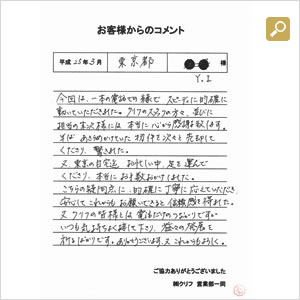 お客様からのコメント
平成 25年 3月 東京都 様
Y.I
今回は、一本の電話での縁で スピーディに的確に
動いていただきました。クリフのスタッフの方々、並びに
担当の末次様には 本当に心から感謝致します。
半ば あきらめかけていた 物件を 次々と売却して
くださり、驚きました。
又、東京の自宅迄 お忙しい中、足を運んで
くださり、本当に お手数おかけしました。
こちらの疑問点に、的確に 丁寧に 応えていただき
安心して これからも お願いできると 信頼感を 得れた。
又 クリフの皆様とは 電話だけのつながりですが
いつも 気持ちよく接して下さり、益々の発展を
祈るばかりです。ありがとうございます。又 これからもよろしく。
ご協力ありがとうございました
㈱クリフ 営業部一同